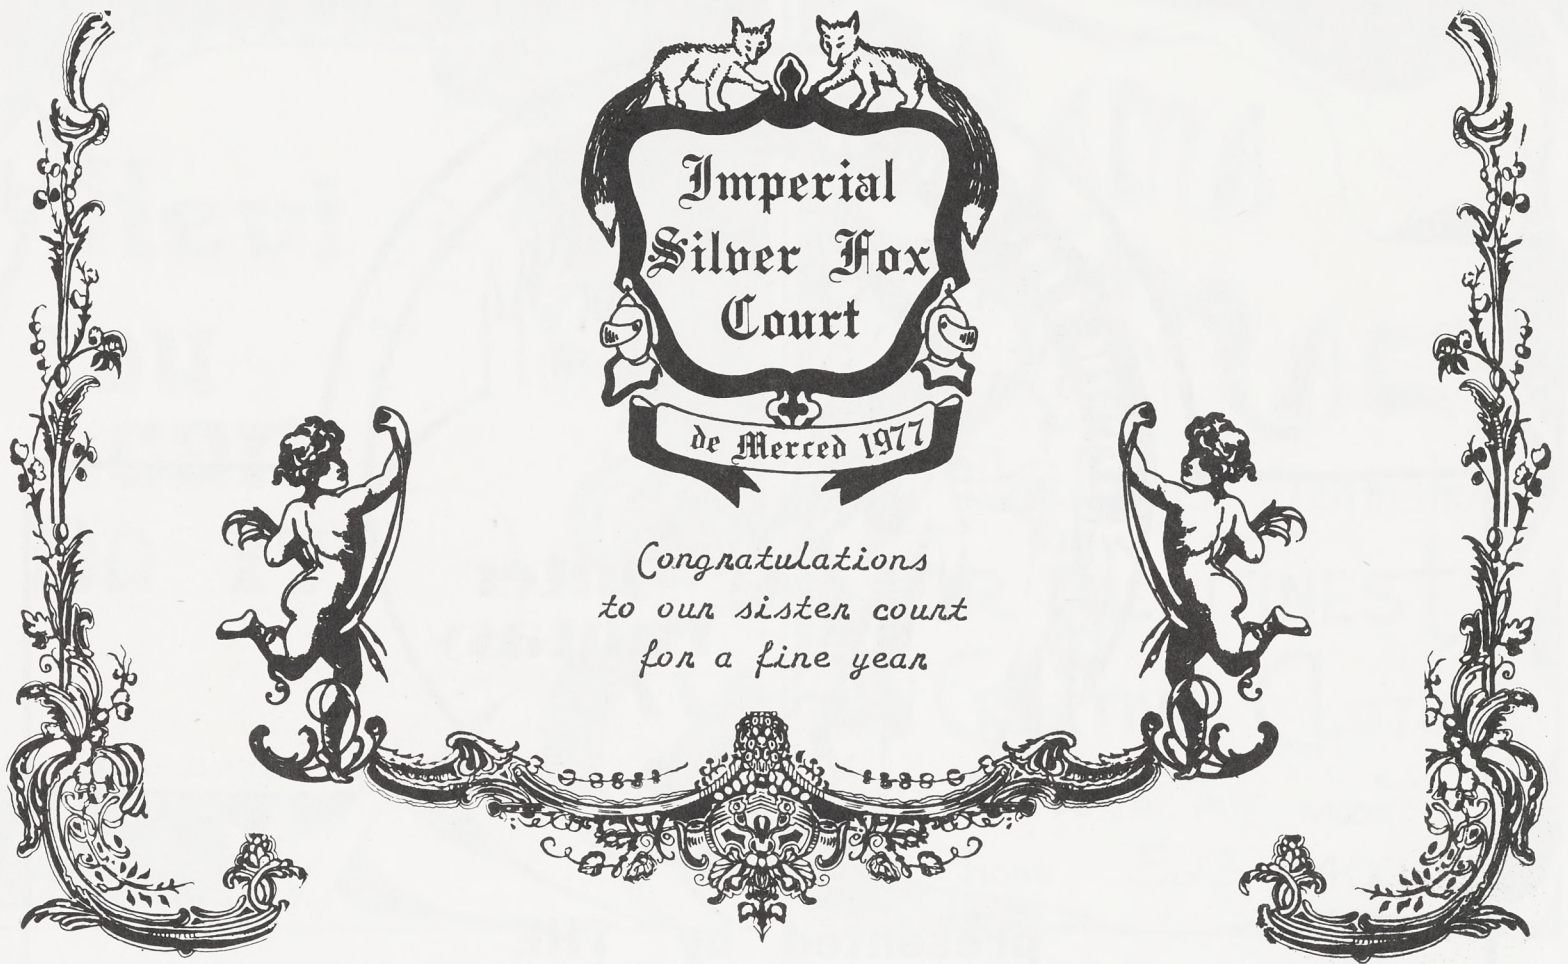 Imperial
Silver Fox
Court
de Merced 1977
Congratulations
to our sister court
for a fine year